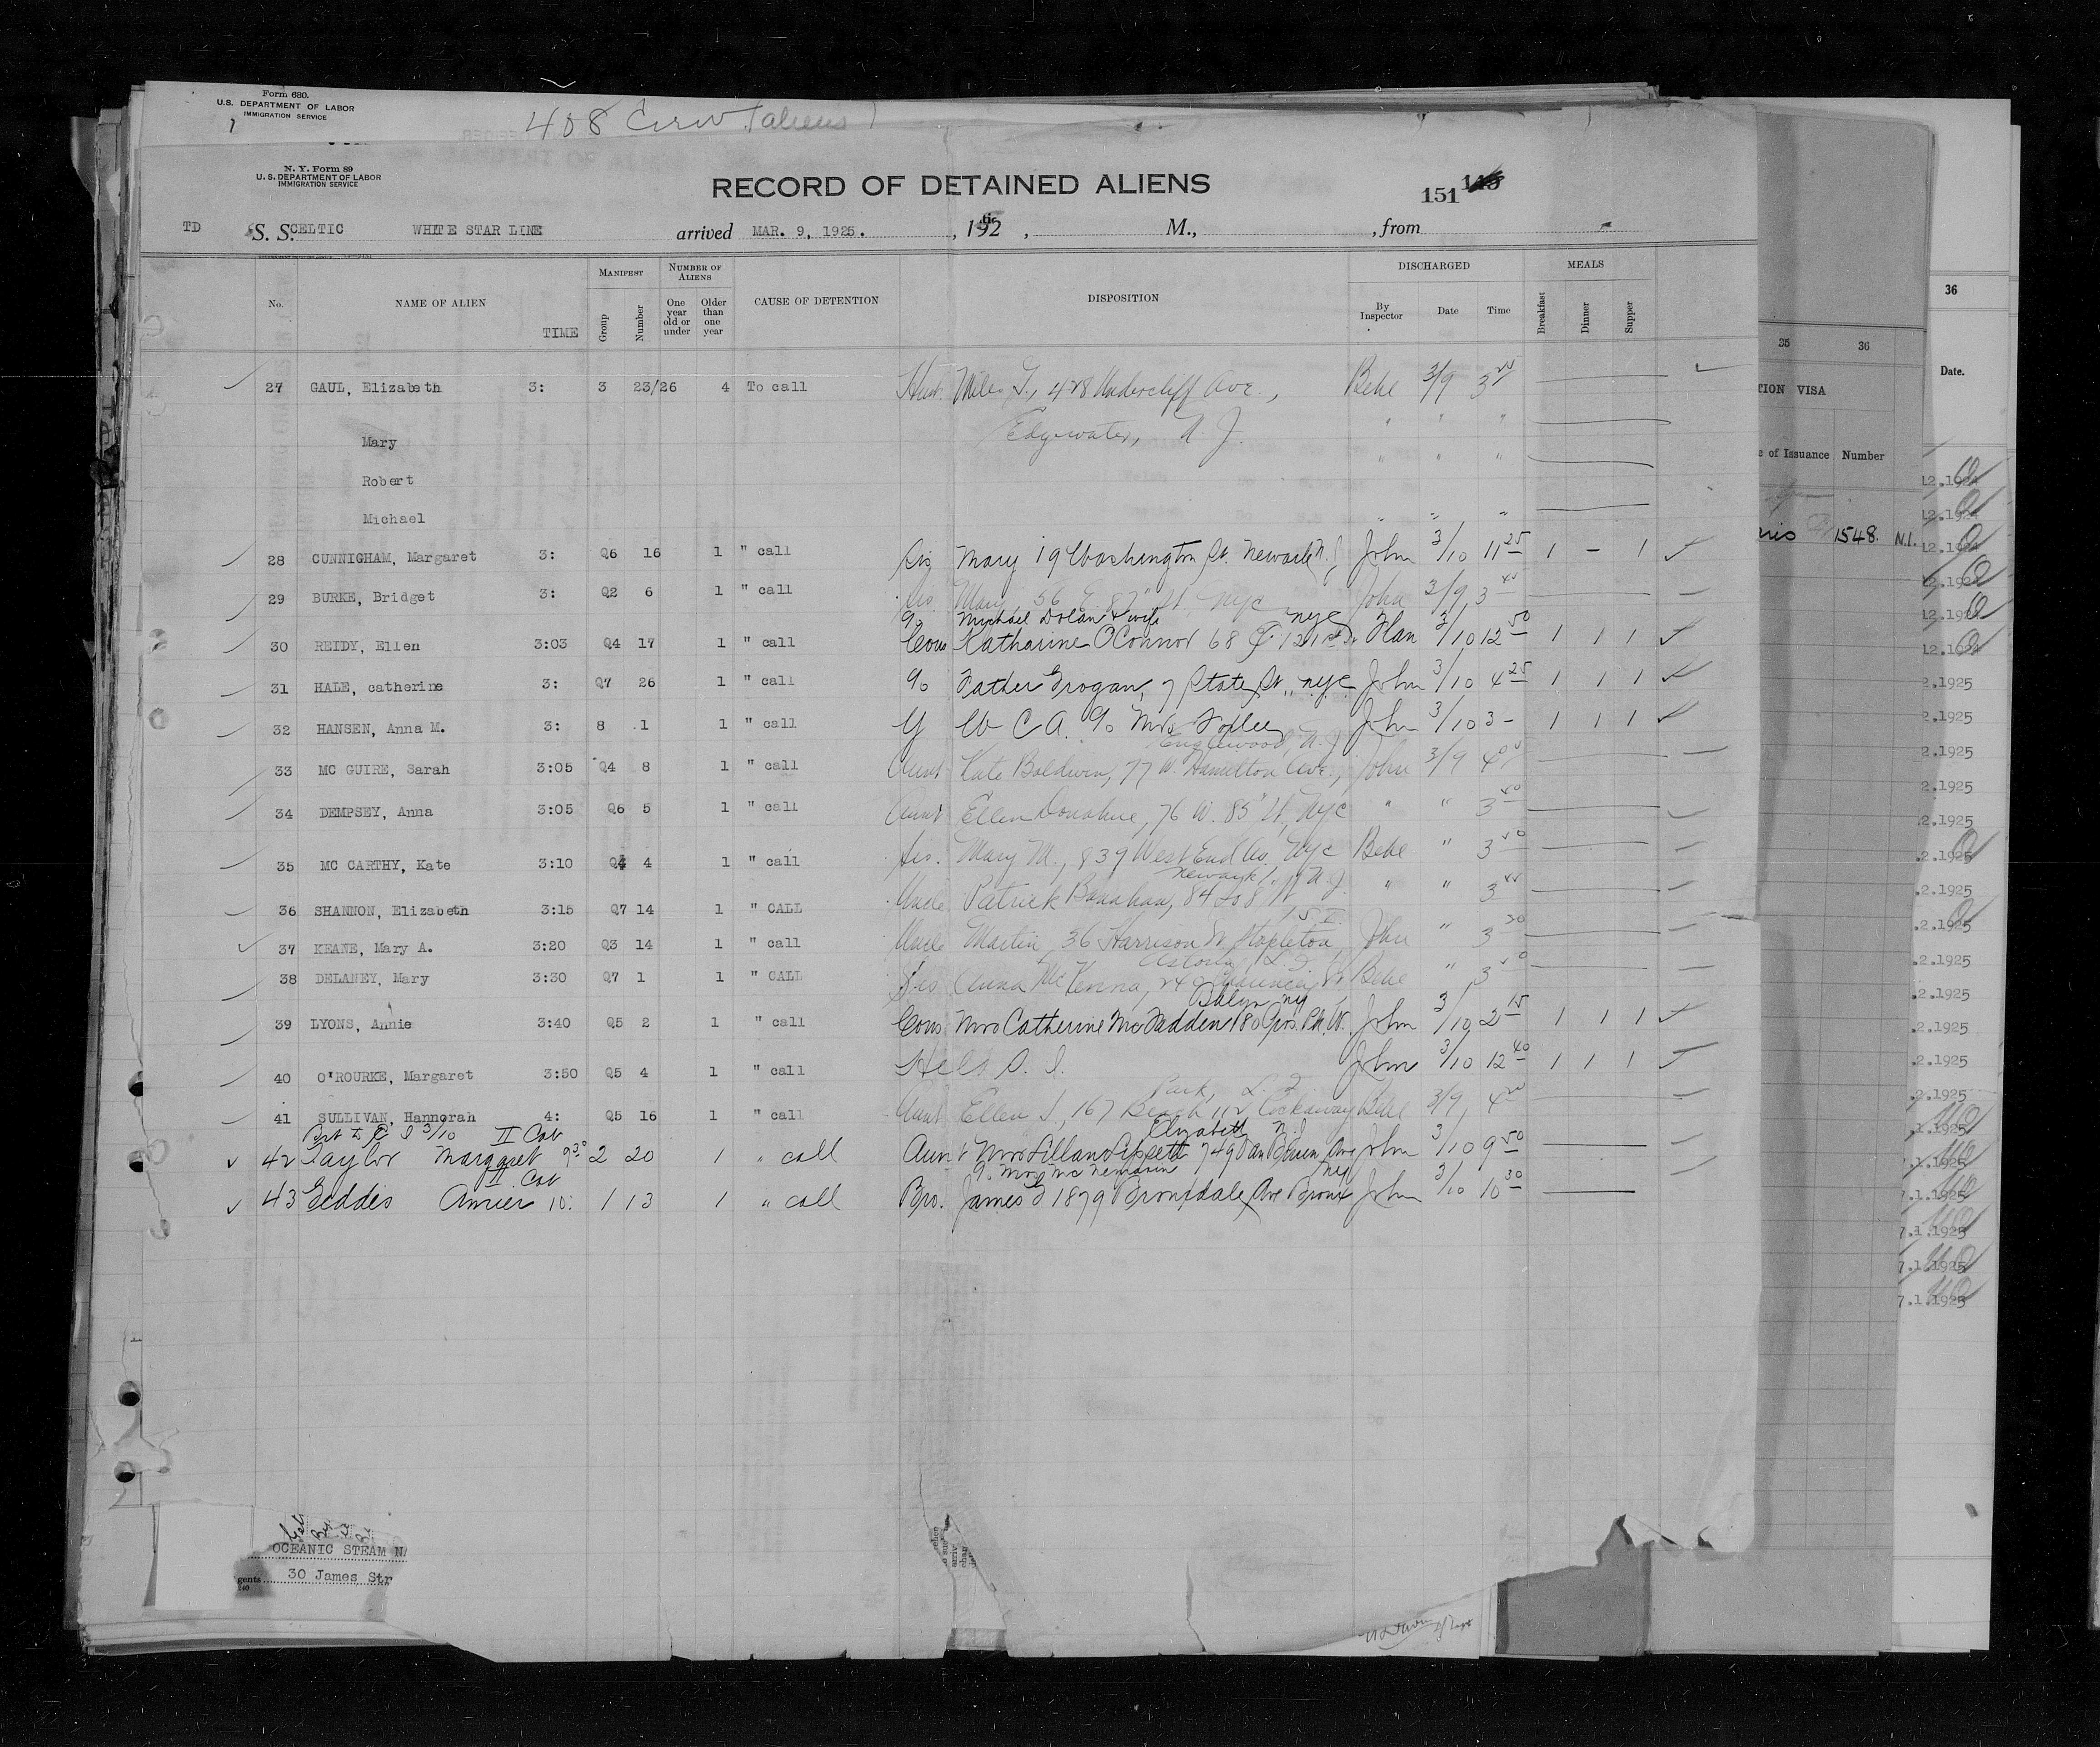 Form 680.
U.S. DEPARTMENT OF LABOR
IMMIGRATION SERVICE
408 Crew (aliens)
N. Y. Form 89
U. S. DEPARTMENT OF LABOR
IMMIGRATION SERVICE
RECORD OF DETAINED ALIENS
151
TD S. S. CELTIC WHITE STAR LINE arrived MAR. 9, 1925. , 192 , M., , from
No. NAME OF ALIEN TIME MANIFEST Group Number NUMBER OF ALIENS One year old or under Older than one year CAUSE OF DETENTION DISPOSITION DISCHARGED By Inspector Date Time MEALS Breakfast Dinner Supper
27 GAUL, Elizabeth 3: 3 23/26 4 To call Hus. Miles J., 428 Undercliff Ave., Bebe 3/9 3
Mary Edgewater, N. J. " " "
Robert " " "
Michael " " "
28 CUNNIGHAM, Margaret 3: Q6 16 1 " call Sis Mary 19 Washington St. Newark N.J. John 3/10 11 25 1 - 1
29 BURKE, Bridget 3: Q2 6 1 " call Mary, 56 E. 87" St, NYC John 3/9 3 40
% Michael Dolan & wife NYC
30 REIDY, Ellen 3:03 Q4 17 1 " call Cous Katharine O'Connor 68 E. 121st St Flan 3/10 12 50 1 1 1
31 HALE, catherine 3: Q7 26 1 " call % Father Grogan, 7 State St., NYC John 3/10 4 25 1 1 1
32 HANSEN, Anna M. 3: 8 1 1 " call Y W C A. % Mrs John 3/10 3 - 1 1 1
Englewood, N. J.
33 MC GUIRE, Sarah 3:05 Q4 8 1 " call Aunt Kate Baldwin, 77 W. Hamilton Ave., John 3/9 4
34 DEMPSEY, Anna 3:05 Q6 5 1 " call Aunt Ellen Donahue, 76 W. 85" St, NYC " " 3 40
35 MC CARTHY, Kate 3:10 Q4 4 1 " call Sis. Mary M., 839 West End Av, NYC Bebe " 3
Newark, N. J.
36 SHANNON, Elizabeth 3:15 Q7 14 1 " CALL Uncle Patrick Banahan, 84 So 8" St " " 3
S. I.
37 KEANE, Mary A. 3:20 Q3 14 1 " call Uncle Martin, 36 Harrison St. Stapleton, John " 3 30
Astoria, L. I.
38 DELANEY, Mary 3:30 Q7 1 1 " CALL Sis Anna McKenna, Chauncey St Bebe " 3
Bklyn NY
39 LYONS, Annie 3:40 Q5 2 1 " call Cous Mrs Catherine McFadden 180 Pros. Pk. W. John 3/10 2 15 1 1 1
40 O'ROURKE, Margaret 3:50 Q5 4 1 " call Held S. I. John 3/10 12 40 1 1 1
Park, L. I.
41 SULLIVAN, Hannorah 4: Q5 16 1 " call Aunt Ellen S, 167 Beach 112, Rockaway Bebe 3/9 4
3/10 II Cab Elizabeth N.J.
42 Taylor Margaret 9 30 2 20 1 " call Aunt Mrs Lillian Lippett 749 Van Buren Ave John 3/10 9 50
II Cab % Mrs McNemarin NY
43 Geddes Annier 10: 1 13 1 " call Bro. James G 1879 Bronxdale Ave Bronx John 3/10 10 30
OCEANIC STEAM NA
gents 30 James Str
240
35 36
TION VISA
e of Issuance Number
1548. N.I.
36
Date.
12.1924
12.1924
12.1924
12.1924
12.1924
12.1924
2.1925
2.1925
2.1925
2.1925
2.1925
2.1925
2.1925
2.1925
2.1925
2.1925
2.1925
2.1925
2.1925
1.1925
7.1.1925
7.1.1925
7.1.1925
7.1.1925
7.1.1925